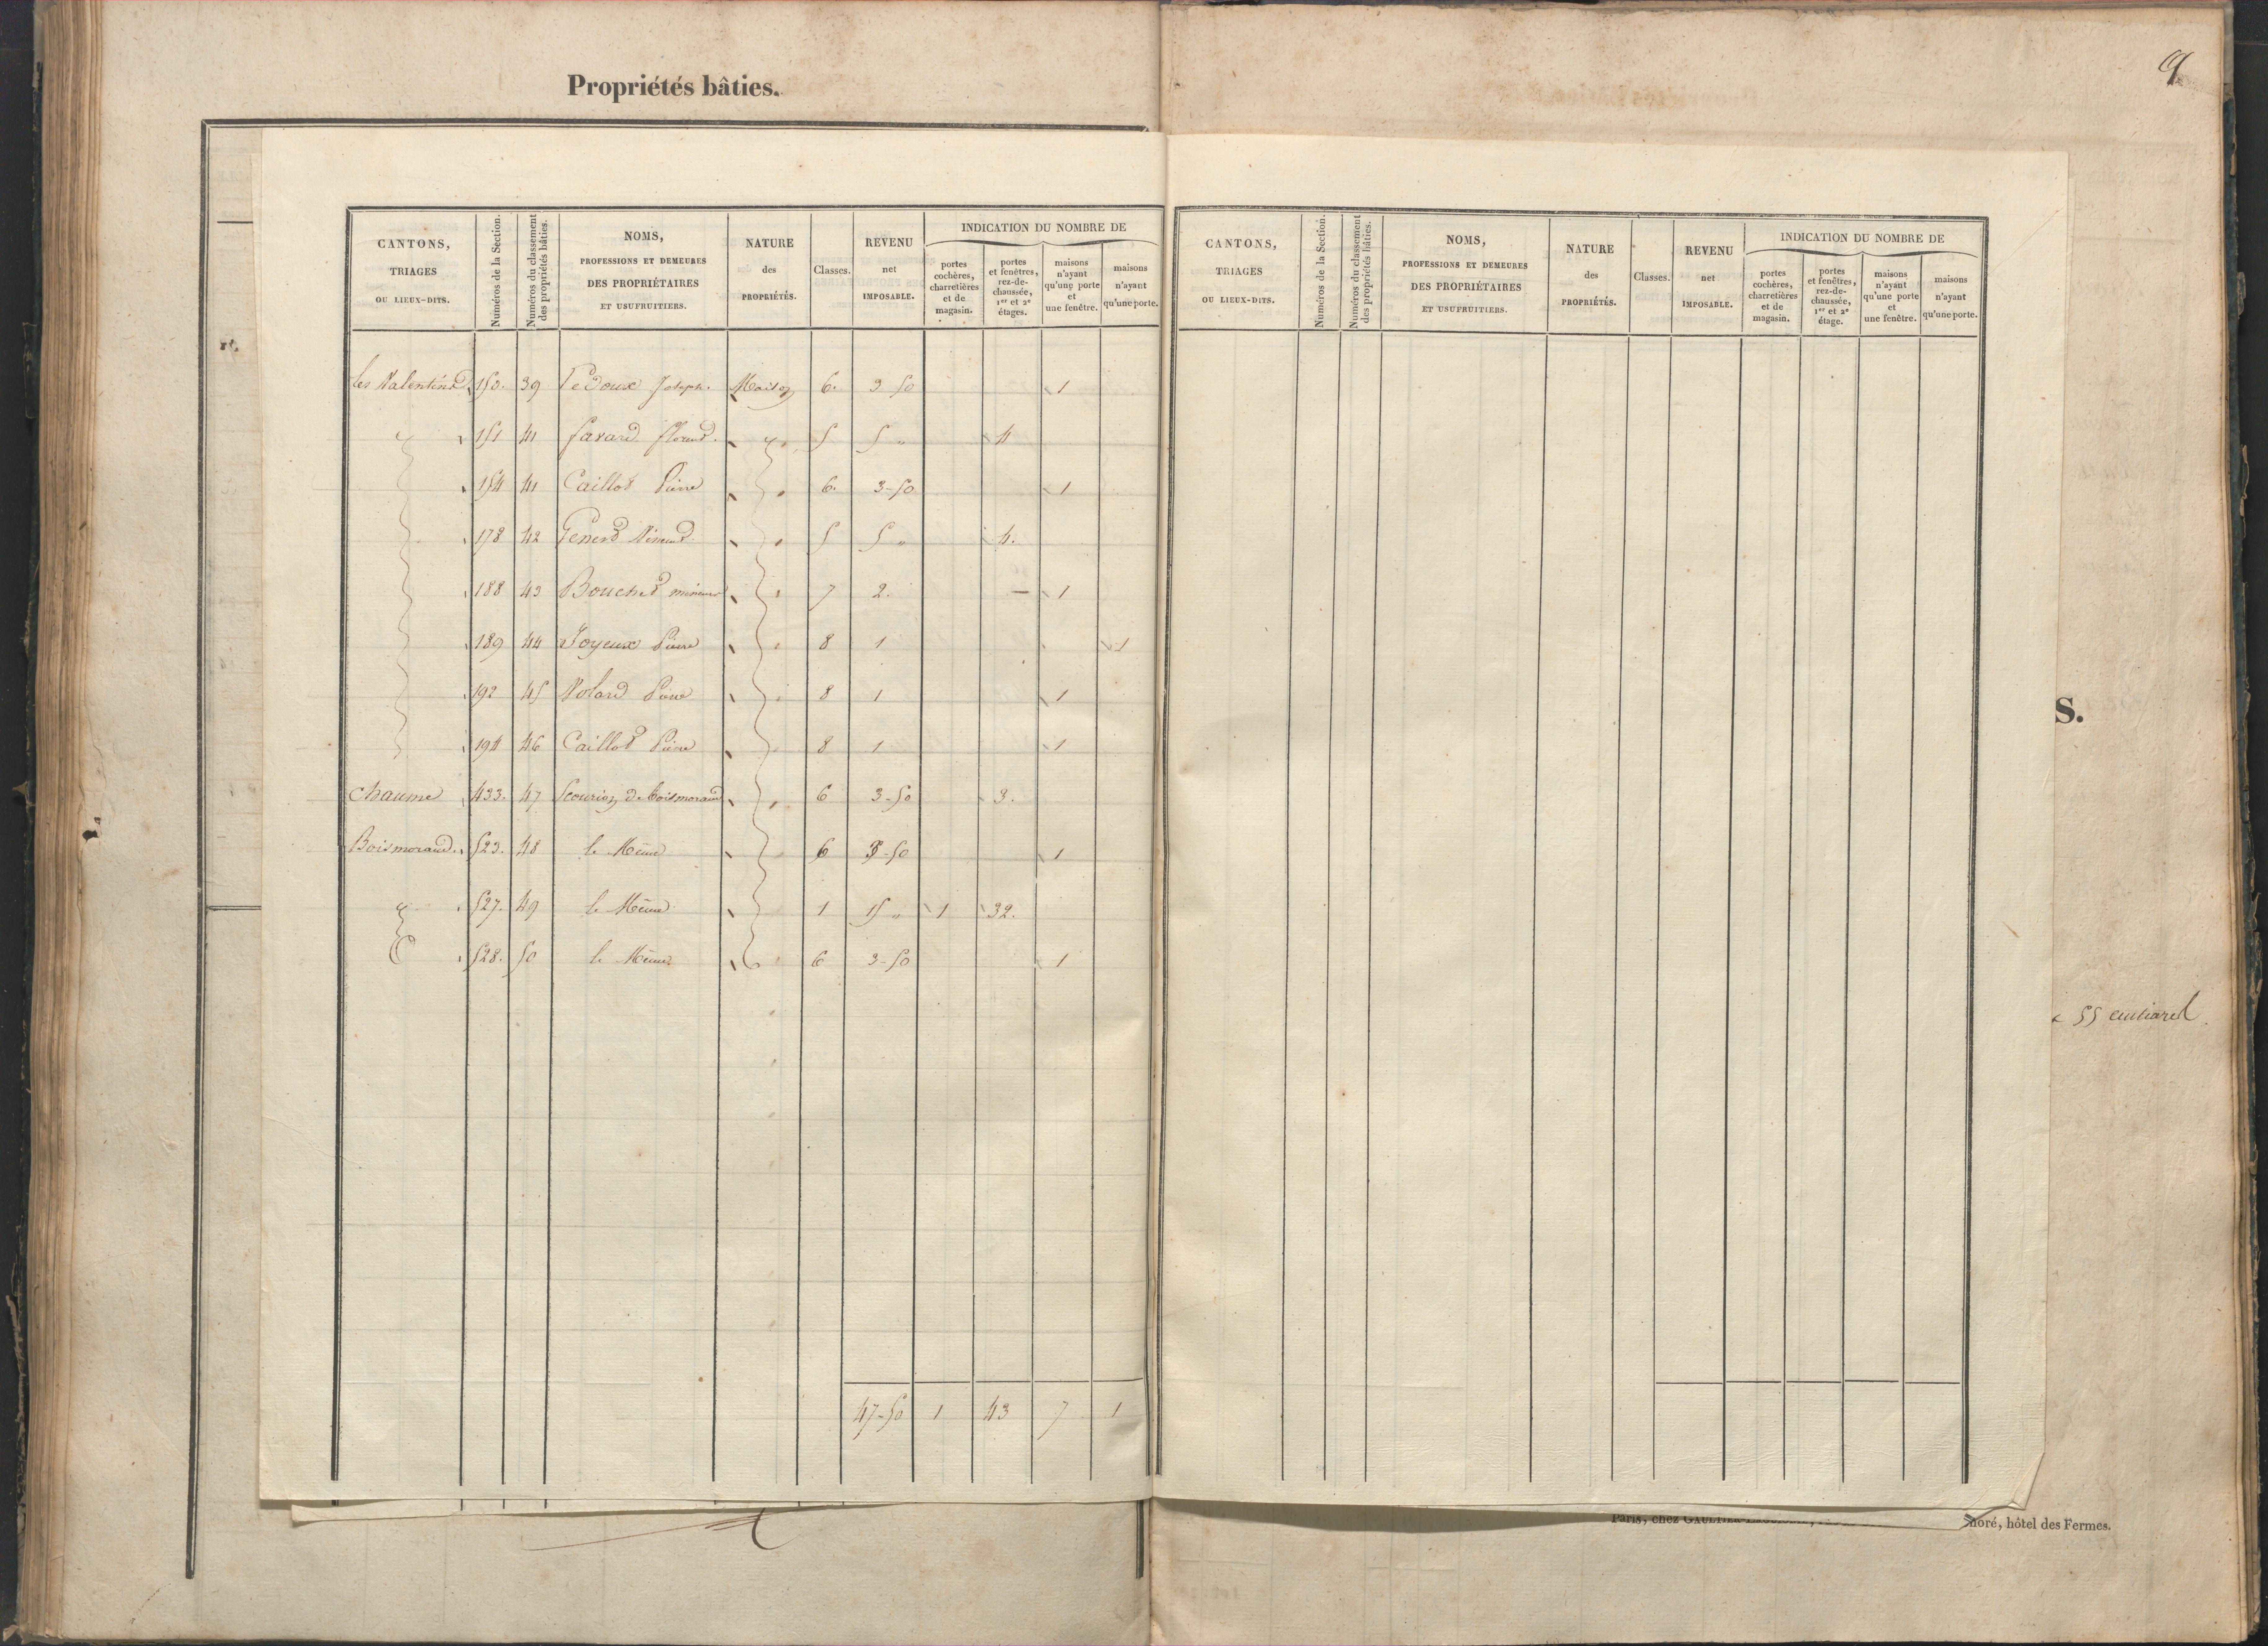 Propriétés bâties.
9
CANTONS, TRIAGES OU LIEUX-DITS. | Numéros de la Section. | Numéros du classement des propriétés bâties. | NOMS, PROFESSIONS ET DEMEURES DES PROPRIÉTAIRES ET USUFRUITIERS. | NATURE des PROPRIÉTÉS. | Classes. | REVENU net IMPOSABLE. | INDICATION DU NOMBRE DE | portes cochères, charretières et de magasin. | portes et fenêtres, rez-de-chaussée, 1er et 2e étages. | maisons n'ayant qu'une porte et une fenêtre. | maisons n'ayant qu'une porte.
les Valentins 150. 39 Pedoux Joseph. Maison 6. 3 50 1
151 41 favard florent. 5 5 " 4
154 41 Caillot Pierre 6. 3-50 1
178 42 5 5 " 4.
188 43 Bouchet mineur 7 2. — 1
189 44 Joyeux Pierre 8 1 1
192 45 Volard Pierre 8 1 1
194 46 Caillot Pierre 8 1 1
Chaume 433. 47 Scourion de boismorand 6 3-50 3.
Boismorand. 523. 48 le Même 6 3-50 1
527. 49 le Même 1 15 " 1 32.
528. 50 le Même 6 3-50 1
47-50 1 43 7 1
CANTONS, TRIAGES OU LIEUX-DITS. | Numéros de la Section. | Numéros du classement des propriétés bâties. | NOMS, PROFESSIONS ET DEMEURES DES PROPRIÉTAIRES ET USUFRUITIERS. | NATURE des PROPRIÉTÉS. | Classes. | REVENU net IMPOSABLE. | INDICATION DU NOMBRE DE | portes cochères, charretières et de magasin. | portes et fenêtres, rez-de-chaussée, 1er et 2e étage. | maisons n'ayant qu'une porte et une fenêtre. | maisons n'ayant qu'une porte.
S.
55 centiares
Paris, chez
noré, hôtel des Fermes.